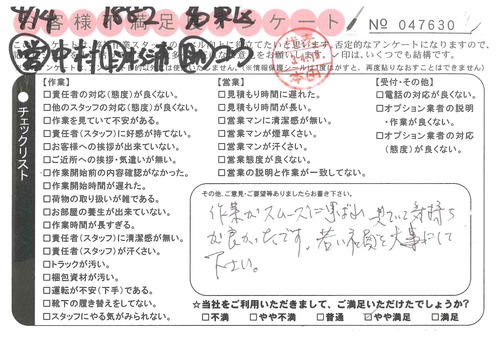 お客様満足アンケート
№ 047630
4/14
1882
チェックリスト
【作業】
□責任者の対応(態度)が良くない。
□他のスタッフの対応(態度)が良くない。
□作業を見ていて不安がある。
□責任者(スタッフ)に好感が持てない。
□お客様への挨拶が出来ていない。
□ご近所への挨拶・気遣いが無い。
□作業開始前の内容確認がなかった。
□作業開始時間が遅れた。
□荷物の取り扱いが雑である。
□お部屋の養生が出来ていない。
□作業時間が長すぎる。
□責任者(スタッフ)に清潔感が無い。
□責任者(スタッフ)が汗くさい。
□トラックが汚い。
□梱包資材が汚い。
□運転が不安(下手)である。
□靴下の履き替えをしてない。
□スタッフにやる気がみられない。
【営業】
□見積もり時間に遅れた。
□見積もり時間が長い。
□営業マンに清潔感が無い。
□営業マンが煙草くさい。
□営業マンが汗くさい。
□営業態度が良くない。
□営業の説明と作業が一致してない。
【受付・その他】
□電話の対応が良くない。
□オプション業者の説明・作業が良くない。
□オプション業者の対応(態度)が良くない。
その他、ご意見・ご要望等ありましたらお書き下さい。
作業がスムーズに運ばれ 見ていて気持ち
が良かったです。若い社員を大事にして
下さい。
☆当社をご利用いただきまして、ご満足いただけたでしょうか?
□不満 □やや不満 □普通 ☑やや満足 □満足